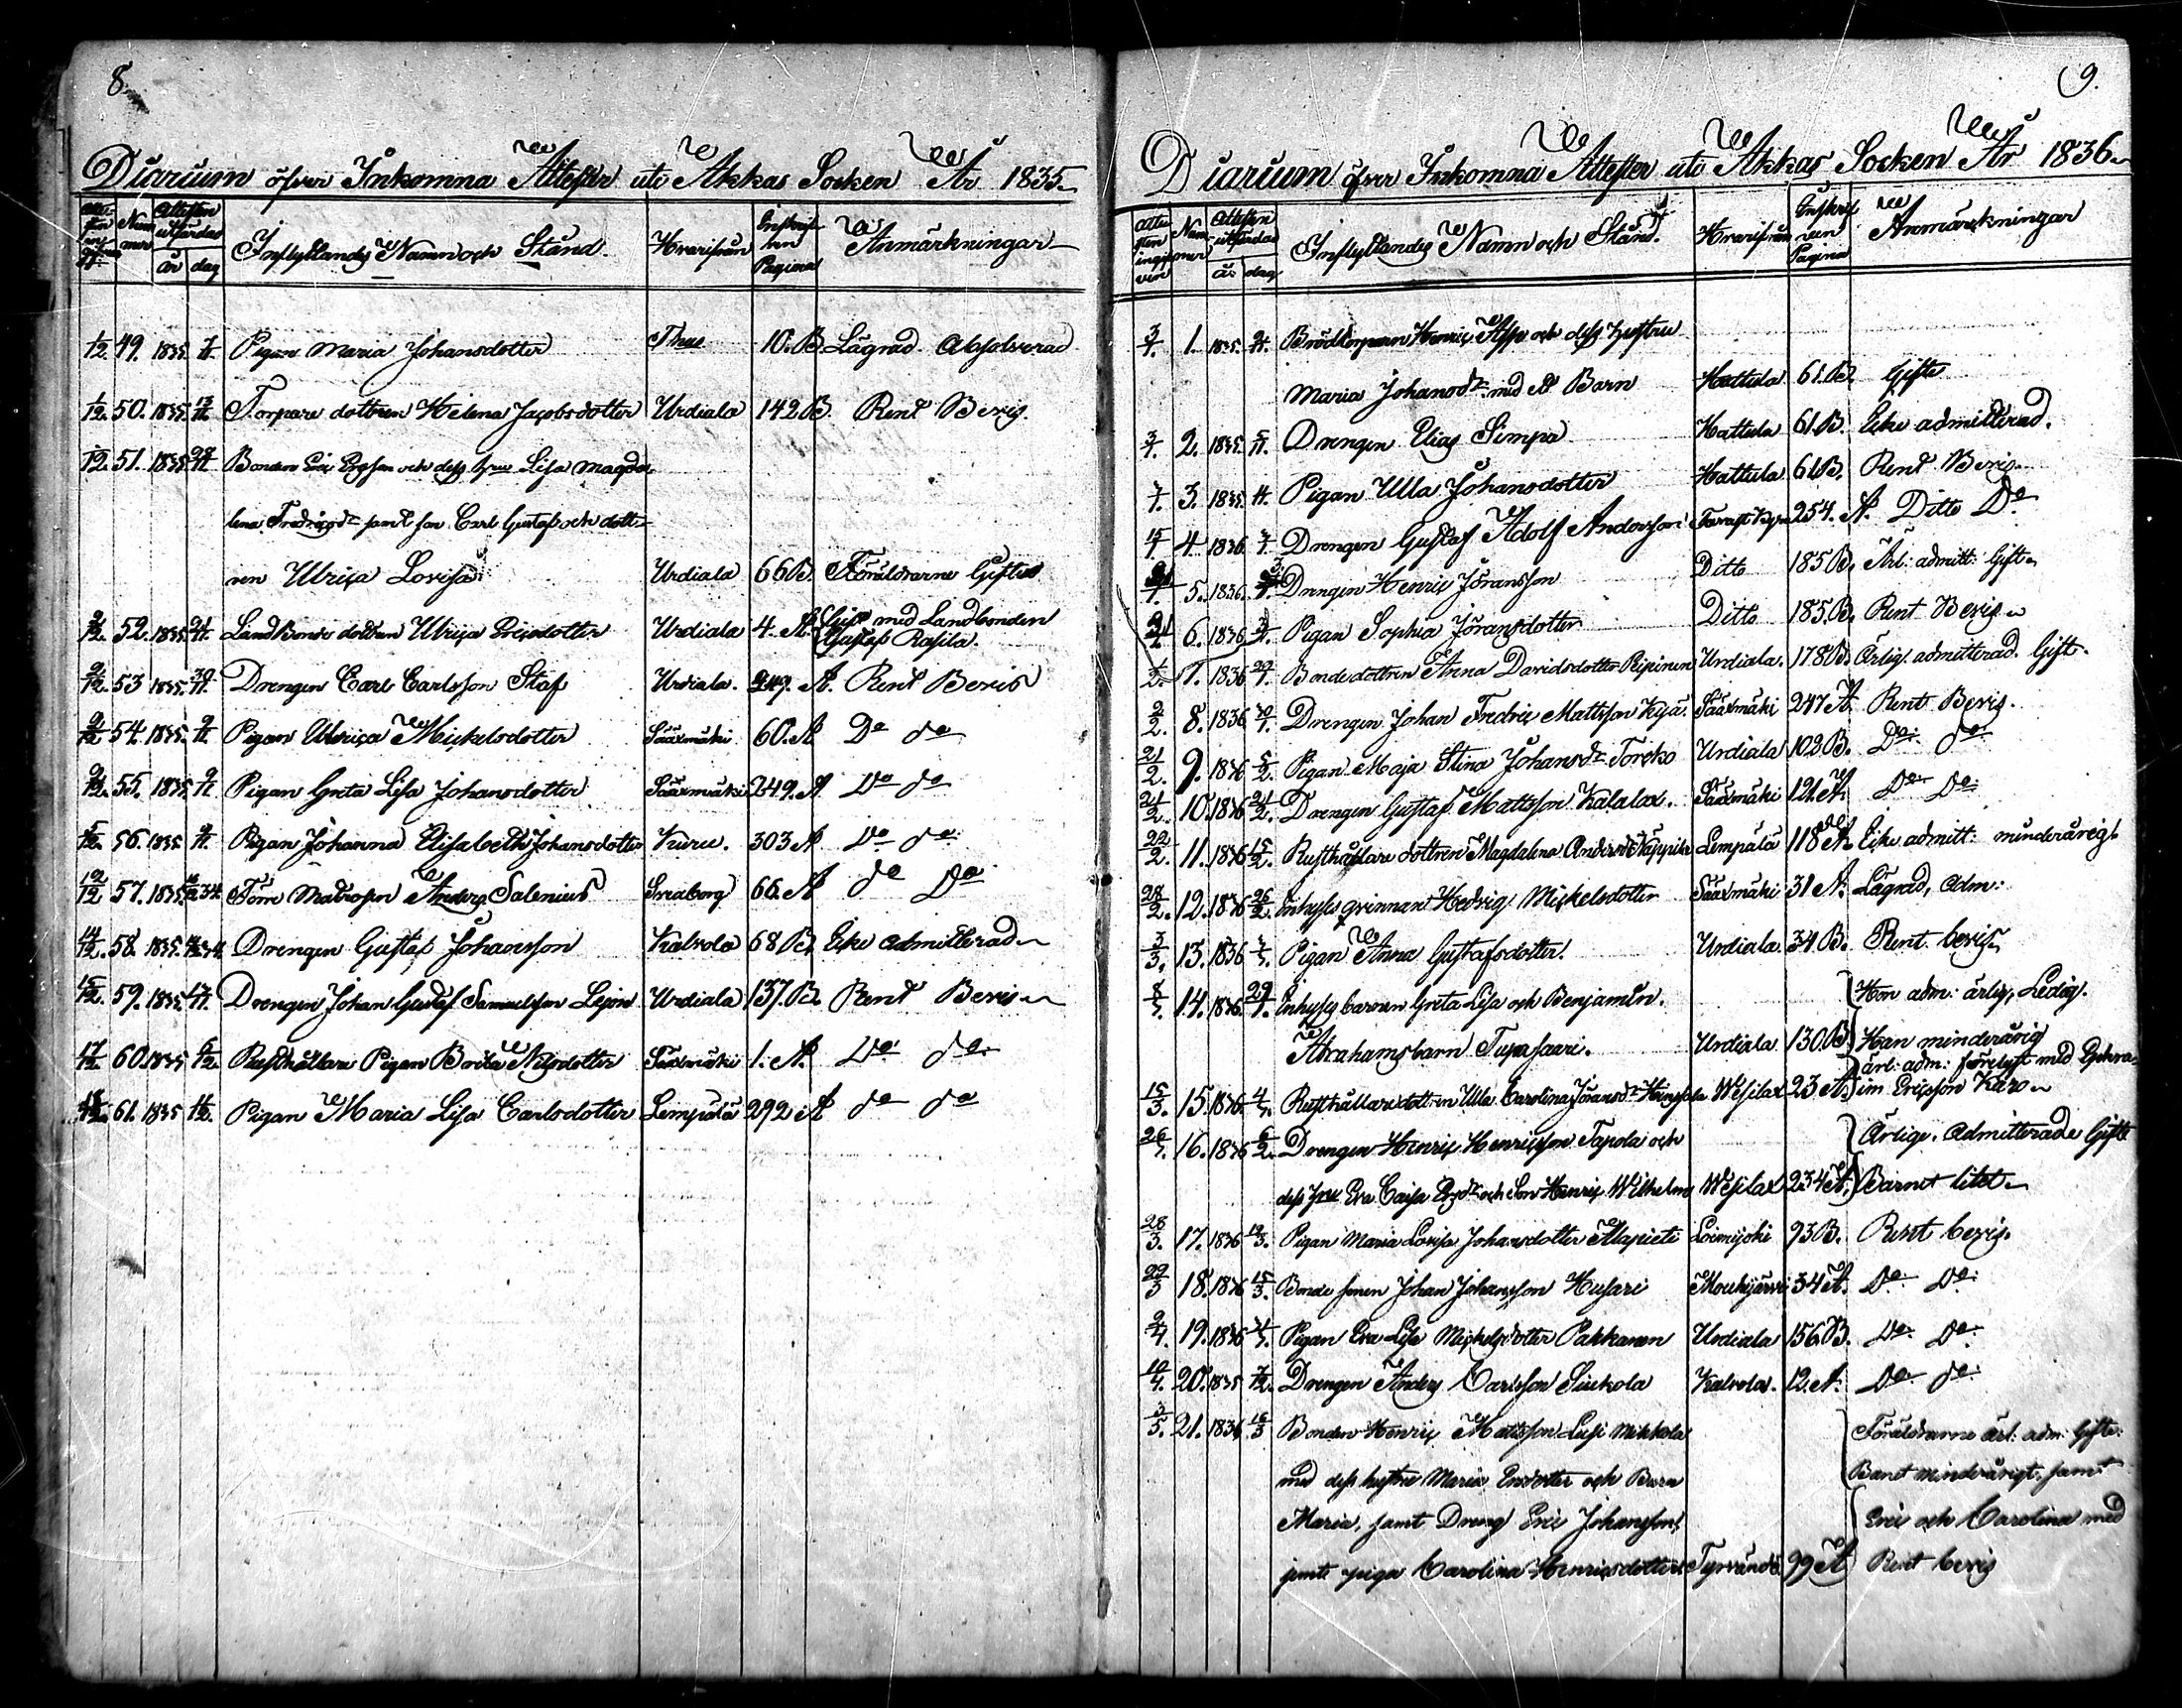 8.
Diarium öfver Inkomna Attester uti Akkas Socken År 1835.
Attesten ingifven
Nummer
Attesten utfärdad
år dag
Inflyttandes Namn och Stånd
Hvarifrån
Inskrifven Pagina
Anmärkningar
1/12. 49. 1835. Pigan Maria Johansdotter 10. B. Lågrad Absolverad
1/12. 50. 1835. 13/11. Torpare dottren Helena Jacobsdotter Urdiala 142. B. Rent Bevis.
1/12. 51. 1835. Bonden Eric Ericsson och dess hru Lisa Magda
lena Fredricsdr samt son Carl Gustaf och dott-
ren Ulrica Lovisa Urdiala 66 B. Föräldrarne Gifte
52. 1835. LandBonde dottren Ulrica Ericsdotter Urdiala 4. A. Gift med Landbonden
Gustaf Rasila.
2/12. 53 1835. 30/11. Drengen Carl Carlsson Staf Urdiala. 249. A. Rent Bevis
2/12 54. 1835. Pigan Ulrica Mickelsdotter Sääxmäki 60. A Do do
55. 1835. Pigan Greta Lisa Johansdotter Sääxmäki 249. A Do do
5/12. 56. 1835. Pigan Johanna Elisabeth Johansdotter Kuru. 303 A Do do
12/12 57. 1835. Förre Matrosen Anders Salenius Sveaborg 66. A do Do
14/12. 58. 1835. Drengen Gustaf Johansson Kalvola 68 B. Icke admitterad
15/12. 59. 1835. Drengen Johan Gustaf Samuelsson Lejon Urdiala 137. B. Rent Bevis
17/12. 60. 1835 6/12. Rusthållare Pigan Brita Nilsdotter Sääxmäki 1. A. Do do
61. 1835 Pigan Maria Lisa Carlsdotter Lempälä 292 A do do
9.
Diarium öfver Inkomna Attester uti Akkas Socken År 1836
Attesten ingifven
Nummer
Attesten utfärdad
år dag
Inflyttandes Namn och Stånd.
Hvarifrån
Inskrifven Pagina
Anmärkningar
3/1. 1. 1835. Henric och dess hustru
Maria Johansdr med Barn Hattula 61. B. Gifte
3/1. 2. 1835. 5/11. Drengen Elias Simpa Hattula 61. B. Icke admitterad.
3. 1835. Pigan Ulla Johansdotter Hattula 61 B. Rent Bevis
15/1 4 1836. Drengen Gustaf Adolf Andersson 254. A. Ditto Do
5. 1836. Drengen Henric Jöransson Ditto 185 B. Ärl: admitt: Gift
6. 1836 Pigan Sophia Jöransdotter Ditto 185. B. Rent Bevis
1/2. 7. 1836 Bondedottren Anna Davidsdotter Urdiala. 178 B. Ärlig admitterad. Gift.
2/2. 8. 1836 Drengen Johan Fredric Mattsson Sääxmäki 247 A Rent Bevis.
21/2. 9. 1836 5/2. Pigan Maja Stina Johansdr Torcko Urdiala 102 B. Do do
21/2. 10. 1836 21/2. Drengen Gustaf Mattsson Kalalax. Sääxmäki 121. A. Do Do
22/2. 11. 1836 15/2. Rusthållare dottren Magdalena Lempälä 118 A Icke admitt: minderårig
28/2. 12. 1836 26/2. Inhyses qvinnan Hedvig Mickelsdotter Sääxmäki 31 A. Lågrad, adm:
3/3. 13. 1836 Pigan Anna Gustafsdotter. Urdiala. 34 B. Rent bevis
14. 1836. Inhyses barnen Greta Lisa och Benjamin. Hon adm: ärlig, Ledig.
Abrahamsbarn Tupasaari. Urdiala 130. B Han minderårig
ärl: adm: förelyst med
15/3. 15. 1836. Rusthållaredottren Ulla Carolina Jöransdr Wesilax 23 A. Ericsson Karo
26/3. 16. 1836 6/2. Drengen Henric Henricsson Tapola och Ärlige. admitterade Gifte
dess hru Eva Caisa och Son Henric Wilhelm Wesilax 234 A. Barnet litet
28/3. 17. 1836 12/3. Pigan Maria Lovisa Johansdotter Loimijoki 93 B. Rent bevis.
29/3 18. 1836 15/3. Bonde sonen Johan Johansson Husari Mouhijärvi 34 A. Do Do
2/4. 19. 1836 Pigan Eva Lisa Mickelsdotter Pakkanen Urdiala 156 B. Do Do
10/4. 20. 1835 Drengen Anders Carlsson Kalvola. 12. A. Do do
3/5. 21. 1836 16/3 Bonden Henric Mattsson Mikkola Föräldrarne ärl: adm: Gifte.
med dess hustru Maria och Barn Barnet minderårigt, samt
Maria, samt Dreng Eric Johansson, Eric och Carolina med
jemte piga Carolina Henricsdotter Tyrvändö 99 A Rent bevis